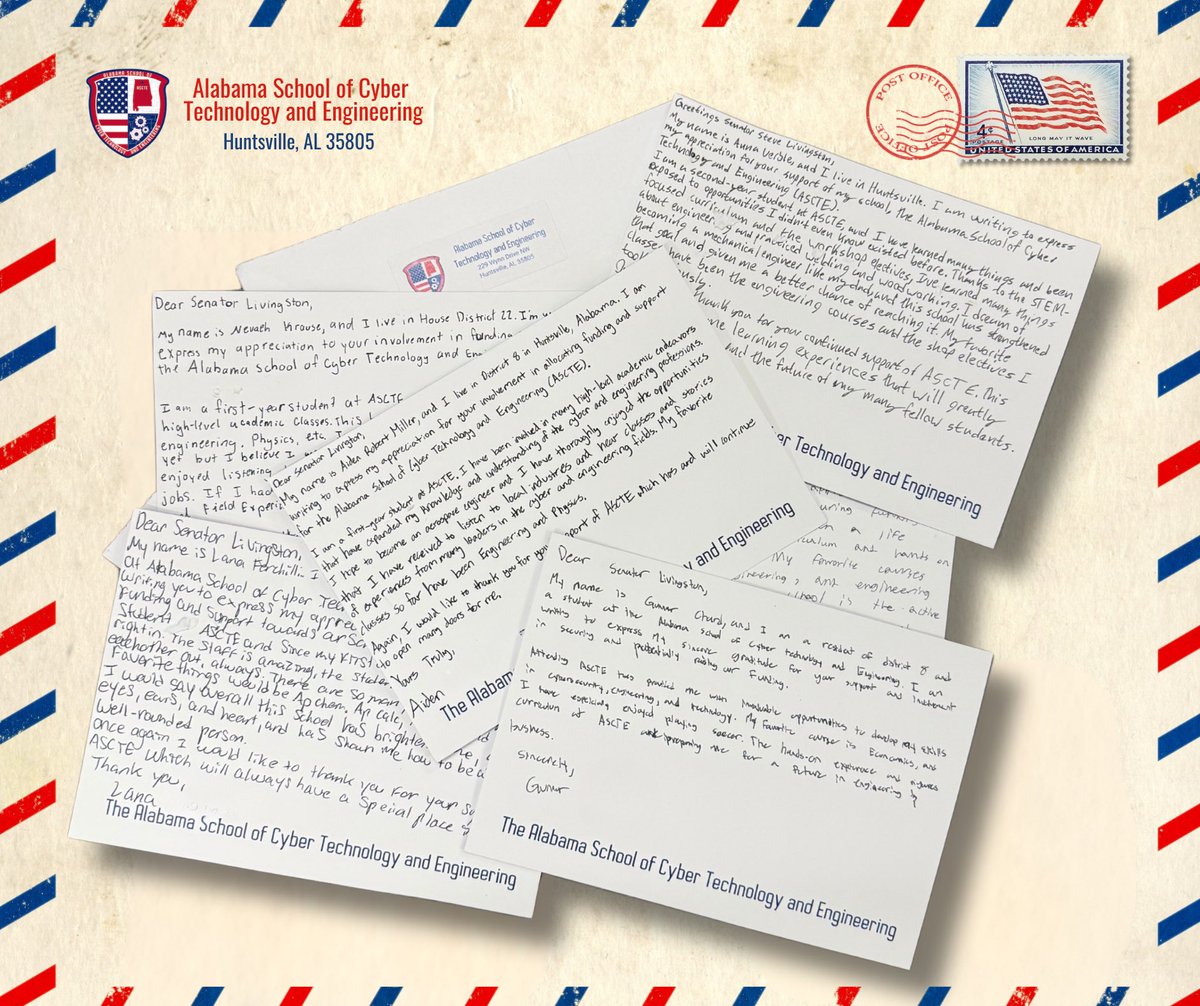 ALABAMA SCHOOL OF
ASCTE
CYBER TECHNOLOGY AND ENGINEERING
Alabama School of Cyber
Technology and Engineering
Huntsville, AL 35805
POST OFFICE
POST OFFICE
4¢
POSTAGE
LONG MAY IT WAVE
UNITED STATES OF AMERICA
Alabama School of Cyber
Technology and Engineering
229 Wynn Drive NW
Huntsville, AL 35805
Greetings Senator Steve Livingston,
My name is Anna Verble, and I live in Huntsville. I am writing to express
my appreciation for your support of my school, the Alabama School of Cyber
Technology and Engineering (ASCTE).
I am a second-year student at ASCTE, and I have learned many things and been
exposed to opportunities I didn't even know existed before. Thanks to the STEM-
focused curriculum and the workshop electives, I've learned many things
about engineering and practiced welding and woodworking. I dream of
becoming a mechanical engineer like my dad, and this school has strengthened
that goal and given me a better chance of reaching it. My favorite
classe
have been the engineering courses and the shop electives I
took
ously.
Thank you for your continued support of ASCTE. This
me learning experiences that will greatly
and the future of my many fellow students.
ber Technology and Engineering
Dear Senator Livingston,
My name is Nevaeh Krouse, and I live in House District 22. I'm w
express my appreciation to your involvement in funding
the Alabama School of Cyber Technology and Eng
I am a first-year student at ASCTE
high-level academic classes. This
engineering, Physics, etc. I
yet but I believe I
enjoyed listening
jobs. If I had
Field Experi
Dear Senator Livingston,
My name is Aiden Robert Miller, and I live in District 8 in Huntsville, Alabama. I am
writing to express my appreciation for your involvement in allocating funding and support
for the Alabama School of Cyber Technology and Engineering (ASCTE).
I am a first-year student at ASCTE, I have been involved in many high-level academic endeavors
that have expanded my knowledge and understanding of the cyber and engineering professions.
I hope to become an aerospace engineer and I have thoroughly enjoyed the opportunities
that I have received to listen to local industries and hear classes and stories
of experiences from many leaders in the cyber and engineering fields. My favorite
classes so far have been Engineering and Physics.
Again, I would like to thank you for your support of ASCTE which has and will continue
to open many doors for me.
Yours Truly,
Aiden
The Alabama
y and Engineering
uring
a life
culum and hands on
My favorite courses
gineering, and engineering
school is the active
Dear Senator Livingston,
My name is Lana Forchilli. I
At Alabama School of Cyber Tec
writing you to express my apprec
funding and support towards our Sc
student at ASCTE and since my first
right in. The staff is amazing, the studen
eachother out, always. There are so man
favorite things would be Ap chem, Ap calc,
I would say overall this school has brighten
eyes, ears, and heart, and has shown me how to be a
well-rounded person.
once again I would like to thank you for your su
ASCTE which will always have a special place
Thank you,
Lana
The Alabama School of Cyber Technology and Engineering
Dear Senator Livingston,
My name is Gunnr Church, and I am a resident of district 8 and
a student at the Alabama school of cyber technology and Engineering. I am
writing to express my sincere gratitude for your support and involvement
in securing and potentially raising our funding.
Attending ASCTE has provided me with invaluable opportunities to develop my skills
in cybersecurity, engineering, and technology. My favorite course is Economics, and
I have especially enjoyed playing soccer. The hands-on experience and rigorous
curriculum at ASCTE are preparing me for a future in engineering &
business.
Sincerely,
Gunnr
The Alabama School of Cyber Technology and Engineering